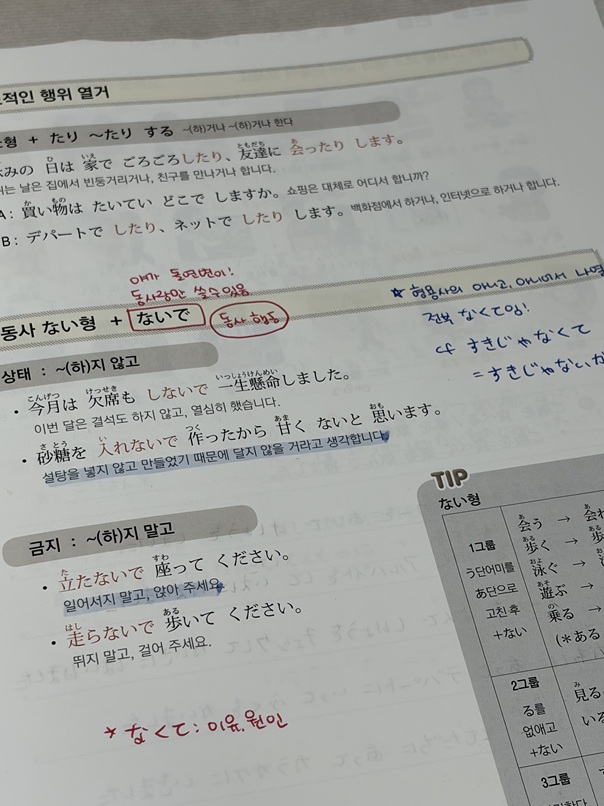 적인 행위 열거
형 + たり ～たり する ~(하)거나 ~(하)거나 한다
みの 日は 家で ごろごろしたり、友達に 会ったり します。
는 날은 집에서 빈둥거리거나, 친구를 만나거나 합니다.
A : 買い物は たいてい どこで しますか。 쇼핑은 대체로 어디서 합니까?
B : デパートで したり、ネットで したり します。 백화점에서 하거나, 인터넷으로 하거나 합니다.
얘가 돌연변이!
동사랑만 쓸 수 있음
동사 ない형 + ないで 동사 행동
☆ 형용사의 아니고, 아니어서 나열
전부 なくて임!
すきじゃなくて
= すきじゃない
상태 : ~(하)지 않고
• 今月は 欠席も しないで 一生懸命しました。
이번 달은 결석도 하지 않고, 열심히 했습니다.
• 砂糖を 入れないで 作ったから 甘く ないと 思います。
설탕을 넣지 않고 만들었기 때문에 달지 않을 거라고 생각합니다.
금지 : ~(하)지 말고
• 立たないで 座って ください。
일어서지 말고, 앉아 주세요.
• 走らないで 歩いて ください。
뛰지 말고, 걸어 주세요.
* なくて : 이유, 원인
TIP
ない형
1그룹
う단어미를
あ단으로
고친 후
+ない
会う →
歩く →
泳ぐ →
遊ぶ →
乗る →
(*ある
2그룹
る를
없애고
+ない
見る
いる
3그룹